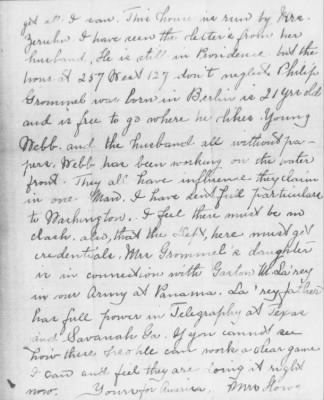 got all I saw. This house is run by Mrs.
Zeruhn I have seen the letters from her
husband, He is still in Providence. but the
house at 257 West 127 don't neglect. Philip
Grommel was born in Berlin is 21 yrs old
and is free to go where he likes. Young
Webb. and the husband all without pa-
pers. Webb has been working on the water
front. They all have influence they claim
in one Man. I have sent full particulars
to Washington. I feel there must be no
clash. also, that the Dept, here must get
credentials. Mrs Grommel's daughter
is in connection with Garton M. La'rey
in our Army at Panama. La'rey father
has full power in Telegraphy at Texas
and Savanah Ga. If you cannot see
how these people can work a clear game
I can and feel they are doing it right
now. Yours for America, Mrs